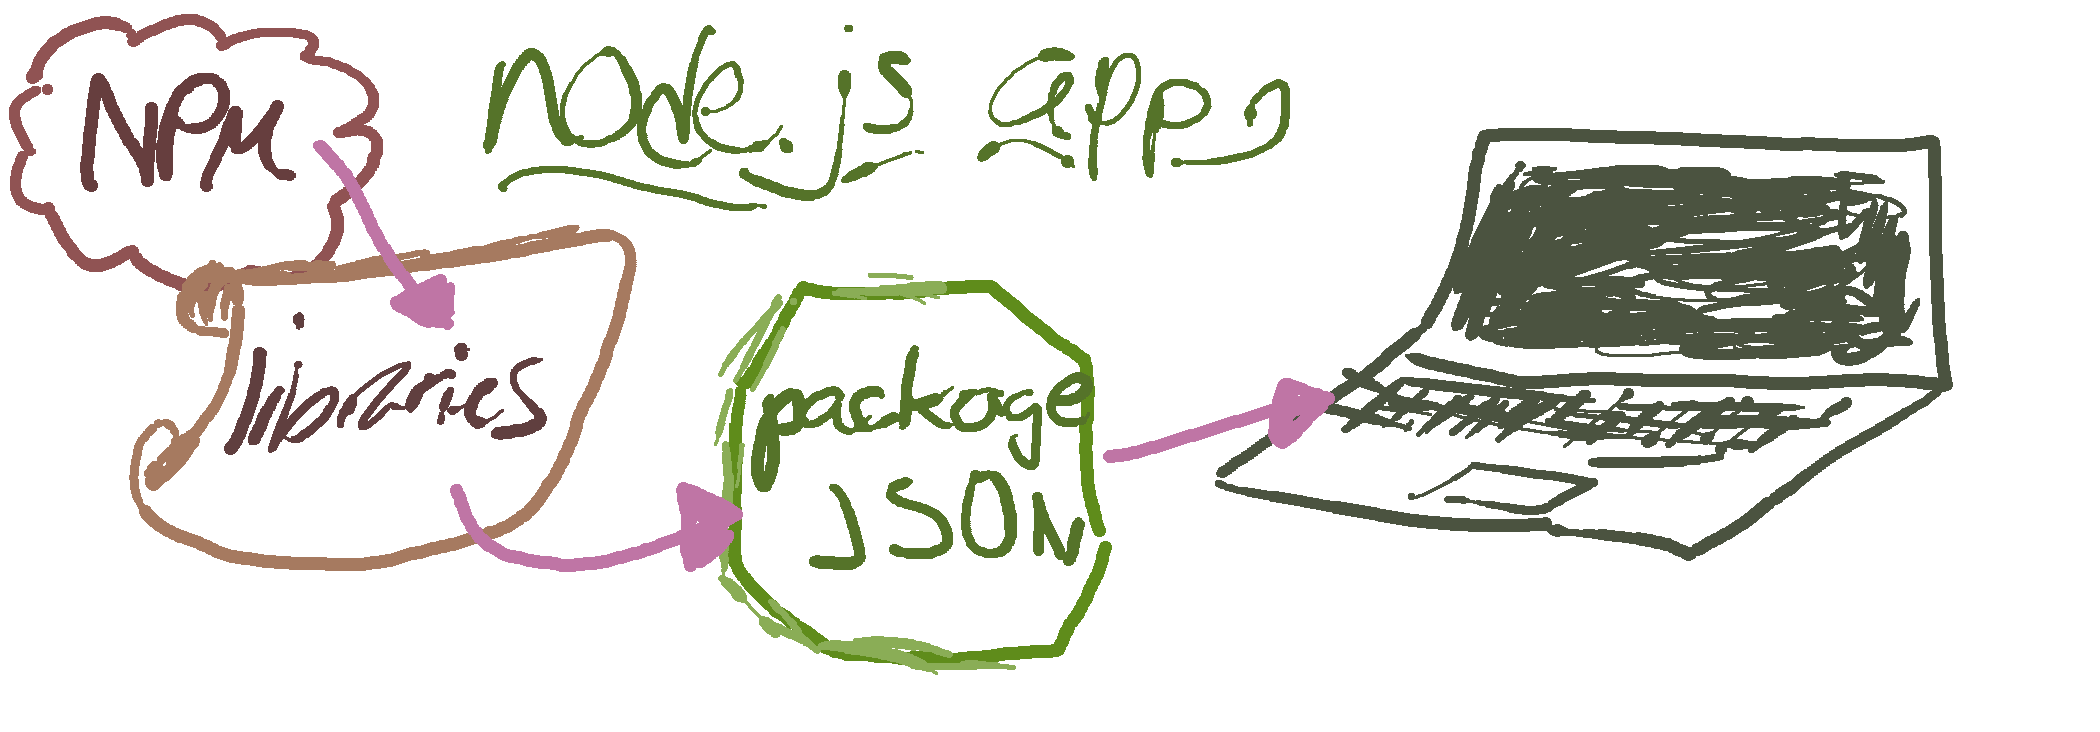 NPM
node.js app
libraries
package
JSON